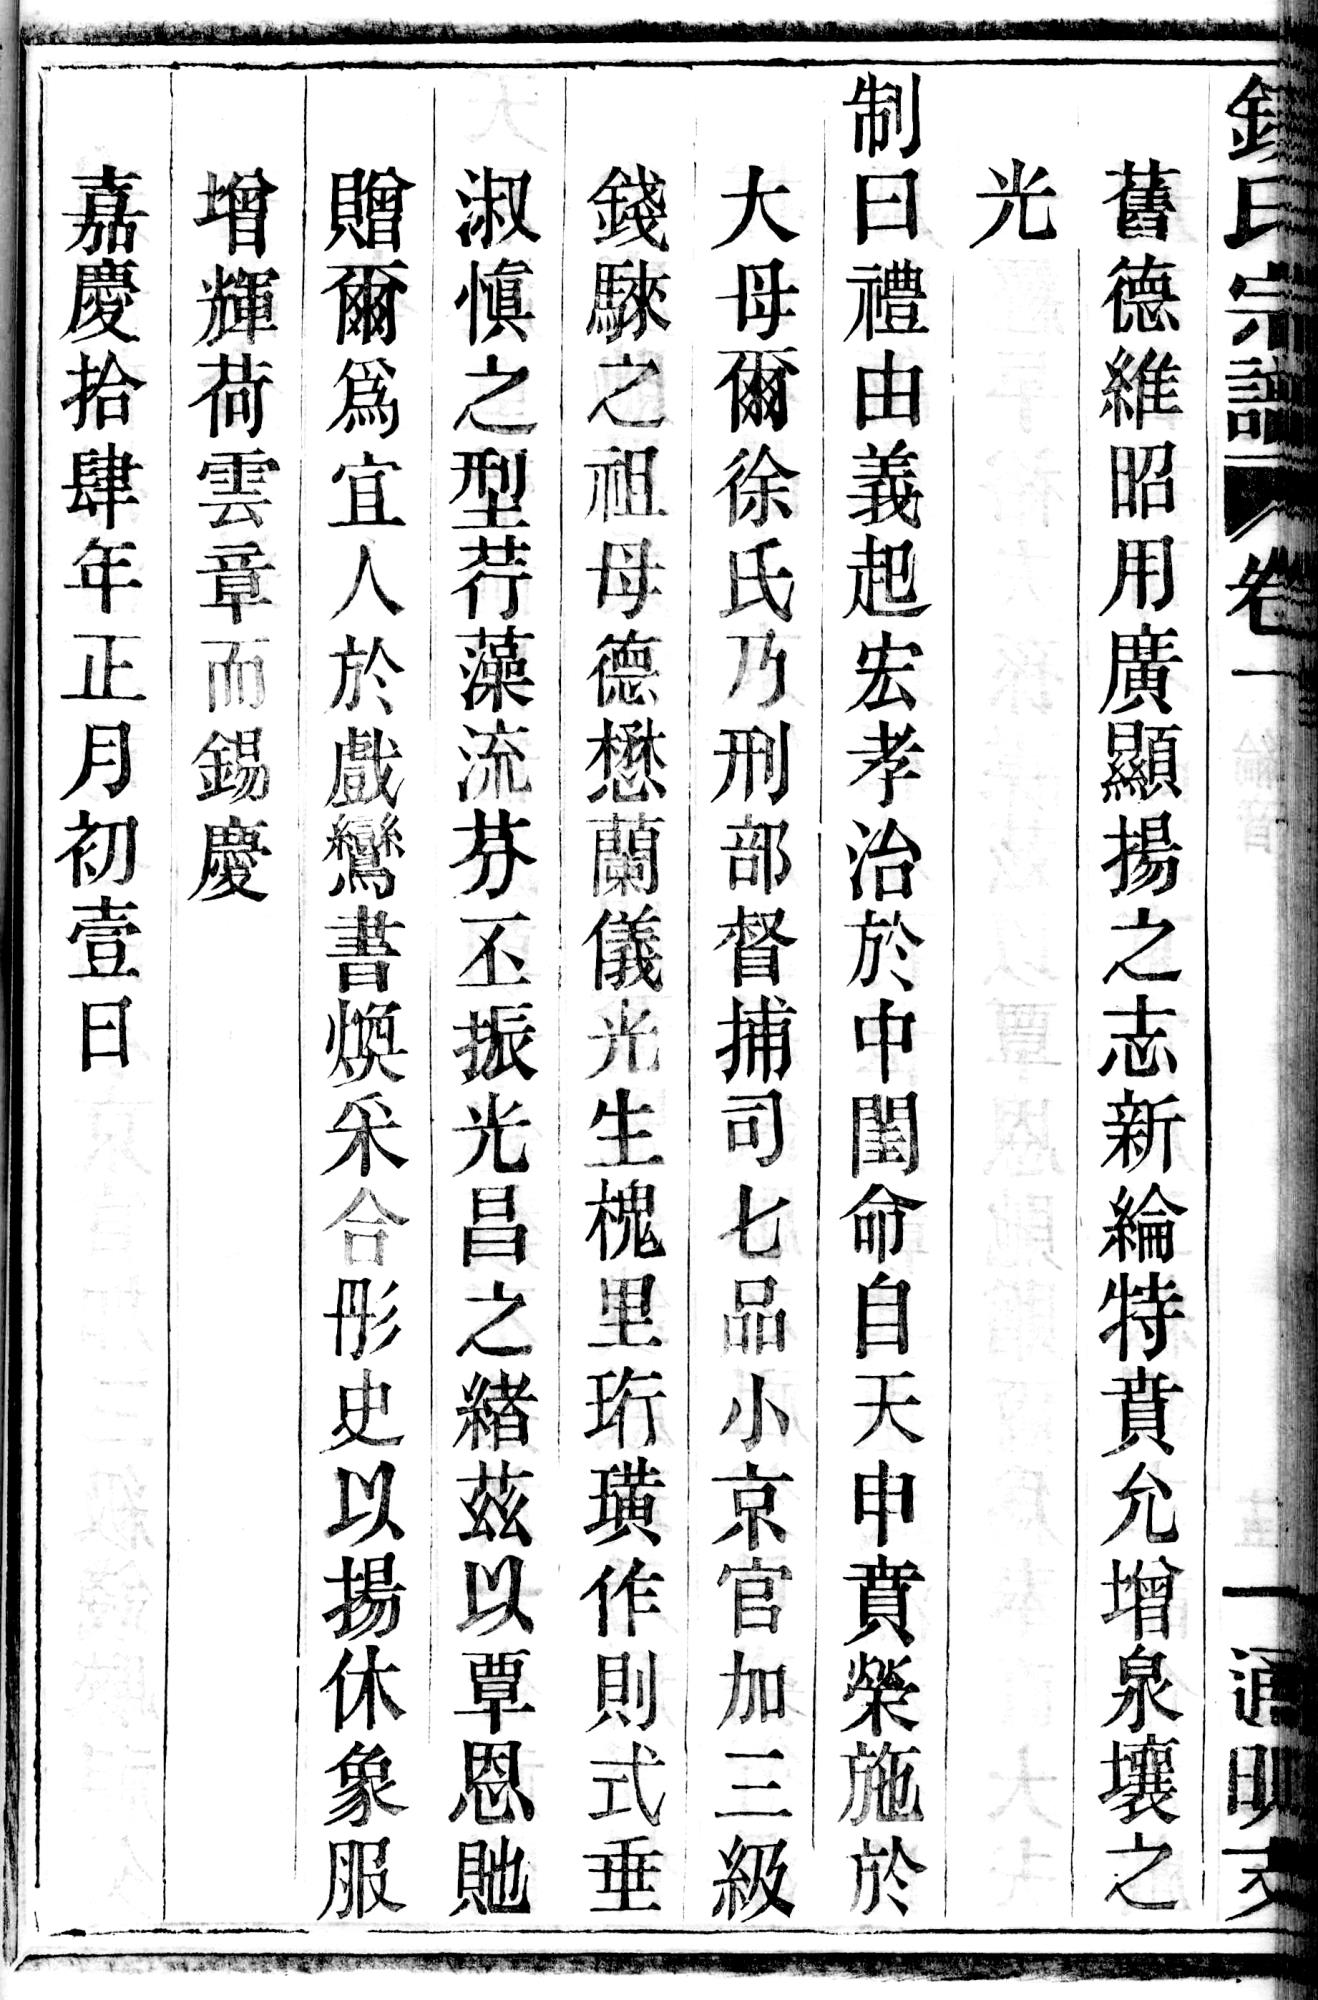 錢氏宗譜 卷一 一 通明支
舊德維昭用廣顯揚之志新綸特賁允增泉壤之
光
制曰禮由義起宏孝治於中閨命自天申賁榮施於
大母爾徐氏乃刑部督捕司七品小京官加三級
錢騋之祖母德懋蘭儀光生槐里珩璜作則式垂
淑愼之型荇藻流芬丕振光昌之緒茲以覃恩貤
贈爾爲宜人於戲鸞書煥采合彤史以揚休象服
增輝荷雲章而錫慶
嘉慶拾肆年正月初壹日